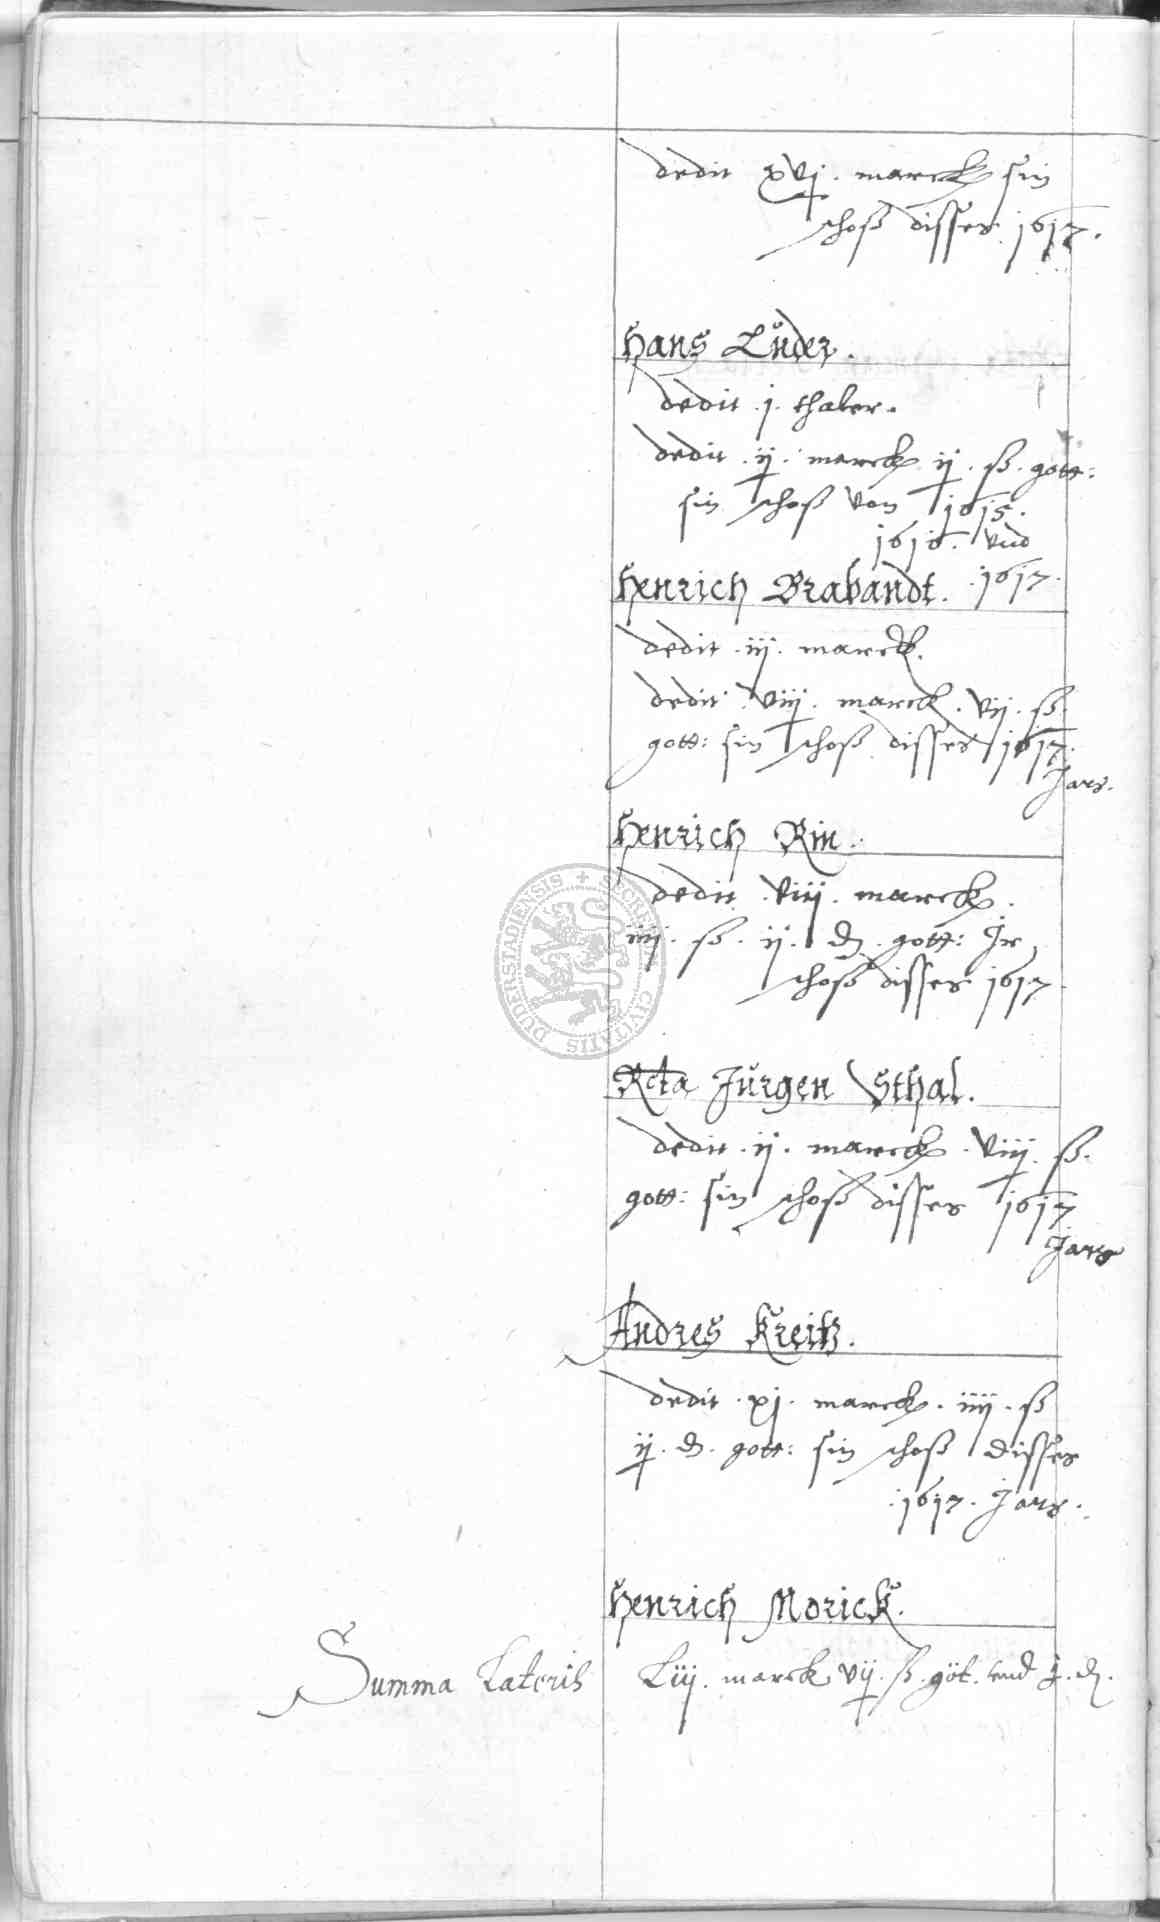 dedit xvj. marck sin
schoß disses 1617.
Hans Lüder.
dedit .j. thaler.
dedit .ij. marck ij. ß. gott:
sin schoß von 1615.
1616. vnd
1617.
Henrich Brabandt.
dedit .iij. marck.
dedit viij. marck. vij. ß.
gott: sin schoß disses 1617.
Jars.
Henrich Rin.
dedit viij. marck.
iiij. ß. ij. d. gott: Jr
schoß disses 1617
Rcta Jürgen Sthal.
dedit .ij. marck. viij. ß.
gott: sin schoß disses 1617
Jars
Andres Kreitz.
dedit .xj. marck. iiij. ß
ij. d. gott: sin schoß disses
.1617. Jars.
Henrich Morick.
Summa Lateris Liij. marck vij. ß. göt. vnd j. d.
SECRETUM CIVITATIS DUDERSTADIENSIS